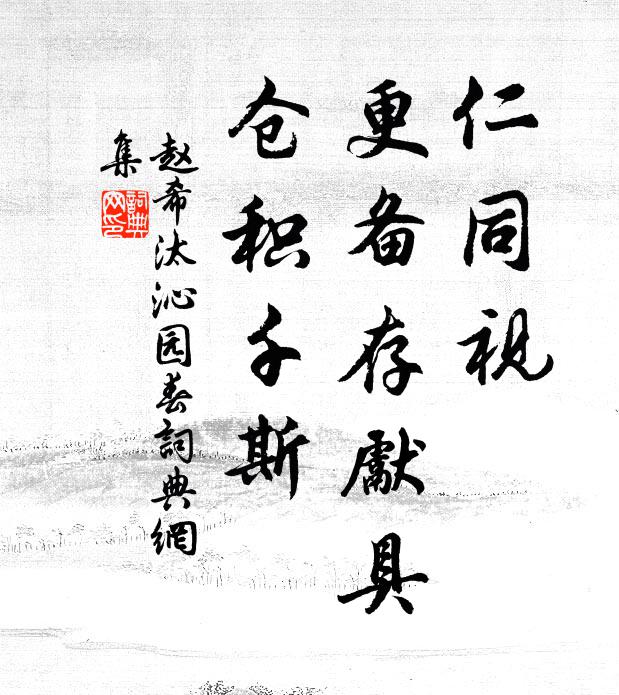 仁同视
更备存獻具
仓积千斯
赵希汰沁园春詞典網
集
詞典
网印